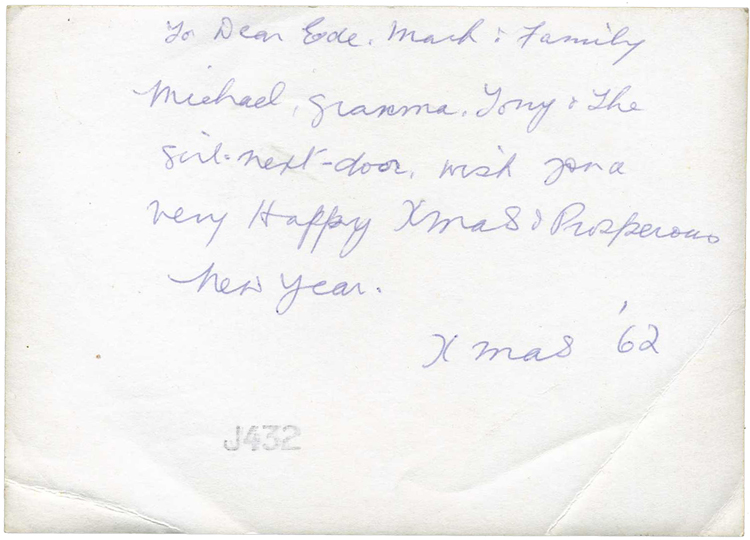 To Dear Ede, Mach & Family
Michael, Granma, Tony & The
girl-next-door, wish you a
very Happy Xmas & Prosperous
New Year.
Xmas '62
J432